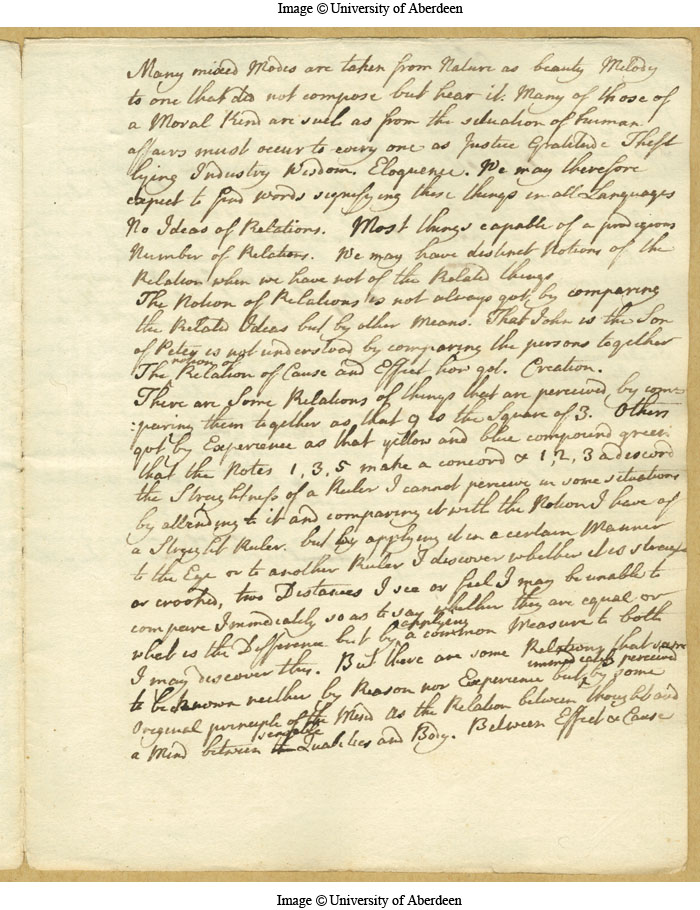 Image © University of Aberdeen
Many mixed Modes are taken from Nature as beauty Melody
to one that did not compose but hear it. Many of those of
a Moral Kind are such as from the situation of human
affairs must occur to every one as Justice Gratitude Theft
lying Industry Wisdom. Eloquence. We may therefore
expect to find words signifying these things in all Languages
No Ideas of Relations. Most things capable of a prodigious
Number of Relations. We may have distinct Notions of the
Relation when we have not of the Related things
The Notion of Relations is not always got by comparing
the Related Ideas but by other means. That John is the Son
of Peter is not understood by comparing the persons together
The notion of Relation of Cause and Effect how got. Creation.
There are Some Relations of things that are perceived by com-
:paring them together as that 9 is the Square of 3. Others
got by Experience as that yellow and blue compound green
that the Notes 1, 3, 5 make a concord & 1, 2, 3 a discord
the Streightness of a Ruler I cannot perceive in some situations
by attending to it and comparing it with the Notion I have of
a Streight Ruler. but by applying it in a certain Manner
to the Eye or to another Ruler I discover whether it is streight
or crooked, two Distances I see or feel I may be unable to
compare Immediately so as to say whether they are equal or
what is the Difference but by applying a common Measure to both
I may discover this. But there are some Relations that
to be known neither by Reason nor Experience but immediately perceived by some
Original principle of the Mind as the Relation between thought and
a Mind between sensible Qualities and Body. Between Effect & Cause
Image © University of Aberdeen